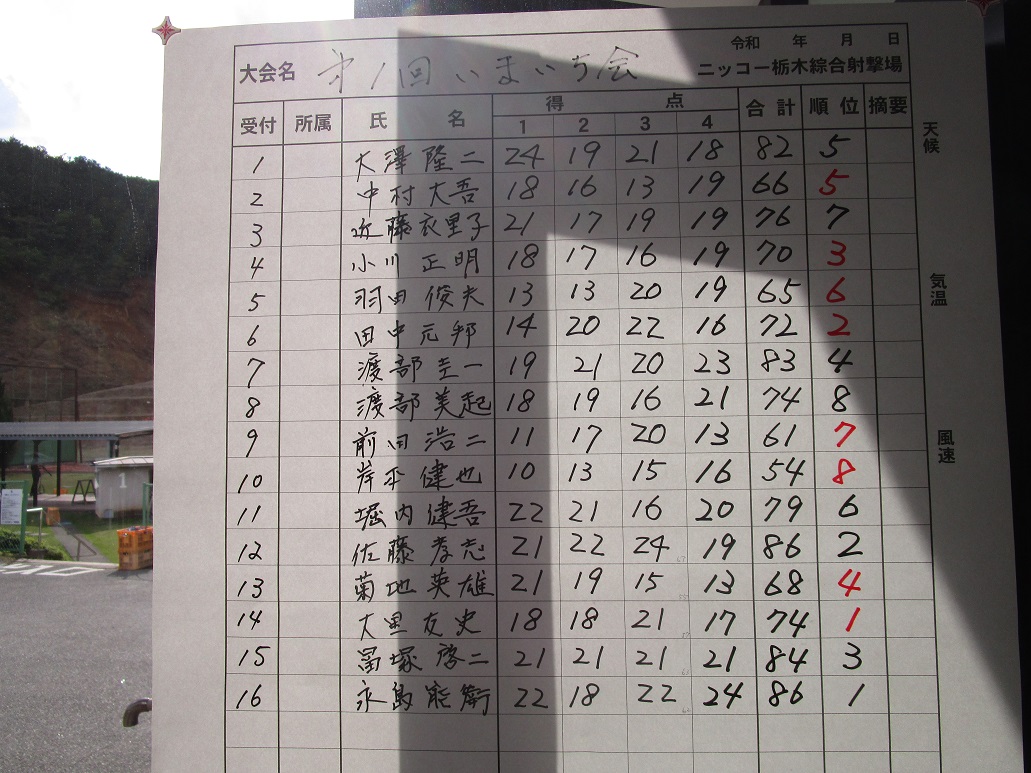 令和 年 月 日
大会名 第1回 いまいち会 ニッコー栃木綜合射撃場
受付 所属 氏名 得点 合計 順位 摘要
1 2 3 4
1 大澤隆二 24 19 21 18 82 5
2 中村大吾 18 16 13 19 66 5
3 近藤衣里子 21 17 19 19 76 7
4 小川正明 18 17 16 19 70 3
5 羽田俊夫 13 13 20 19 65 6
6 田中元邦 14 20 22 16 72 2
7 渡部圭一 19 21 20 23 83 4
8 渡部美起 18 19 16 21 74 8
9 前田浩二 11 17 20 13 61 7
10 岸平健也 10 13 15 16 54 8
11 堀内健吾 22 21 16 20 79 6
12 佐藤孝志 21 22 24 19 86 2
13 菊地英雄 21 19 15 13 68 4
14 大里友史 18 18 21 17 74 1
15 冨塚啓二 21 21 21 21 84 3
16 永島能衛 22 18 22 24 86 1
天候
気温
風速